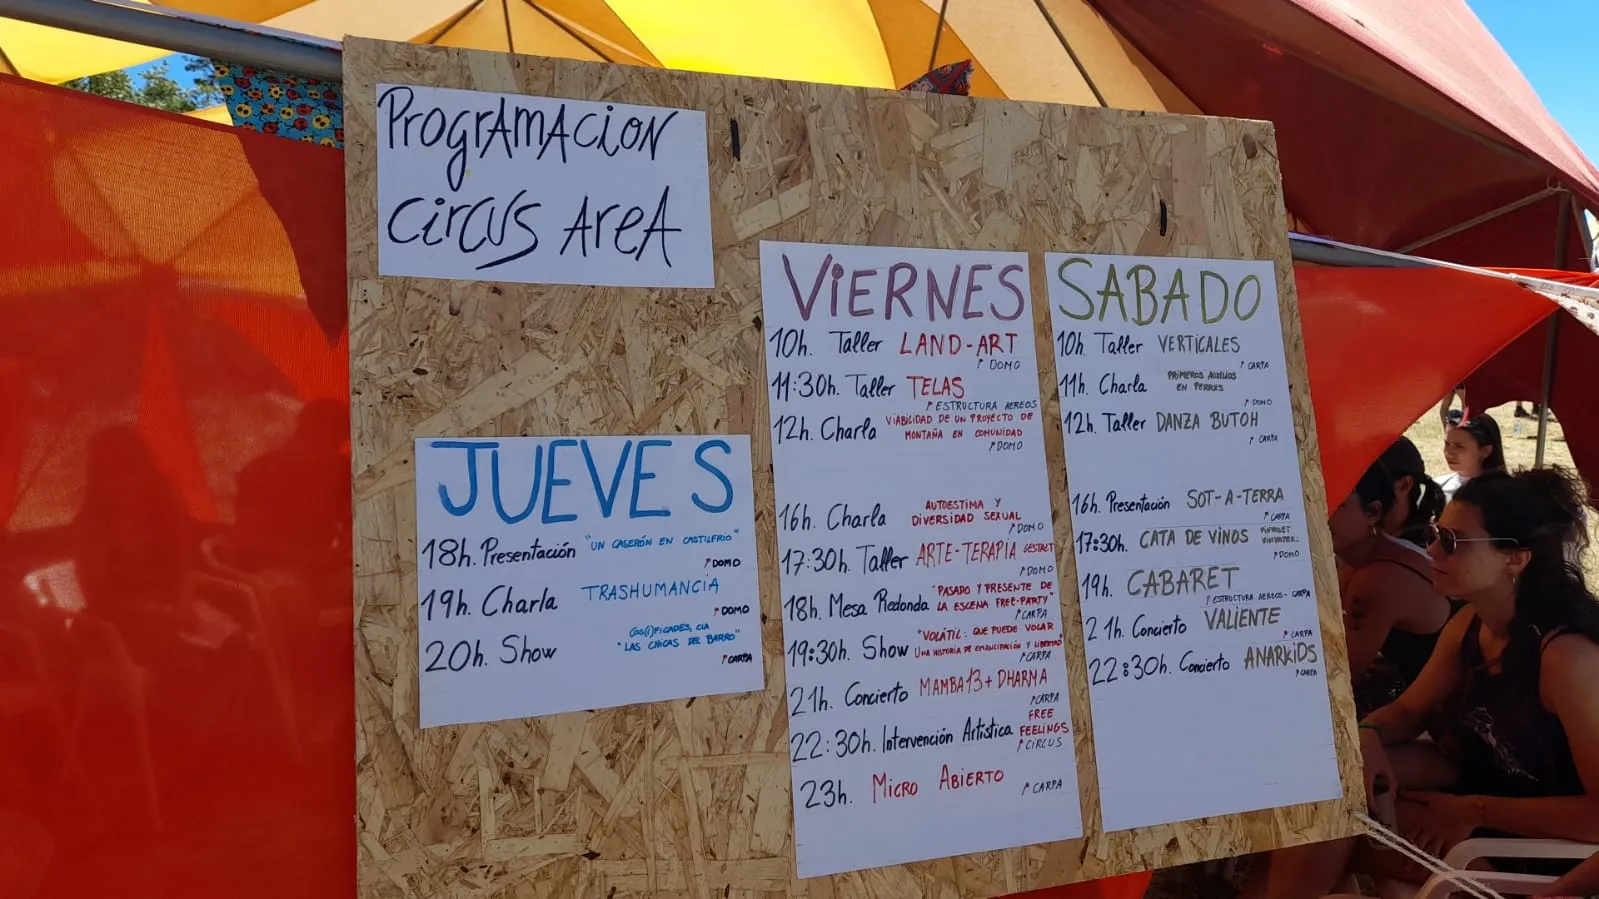 PROGRAMACION
CIRCUS AREA
JUEVES
18h. Presentación "UN CASERÓN EN CASTILFRIO"
DOMO
19h. Charla TRASHUMANCIA
DOMO
20h. Show COS(I)FIGADES, CIA
"LAS CHICAS DEL BARRO"
CARPA
VIERNES
10h. Taller LAND-ART
DOMO
11:30h. Taller TELAS
ESTRUCTURA AEREOS
12h. Charla VIABILIDAD DE UN PROYECTO DE
MONTAÑA EN COMUNIDAD
DOMO
16h. Charla AUTOESTIMA Y
DIVERSIDAD SEXUAL
DOMO
17:30h. Taller ARTE-TERAPIA GESTALT
DOMO
18h. Mesa Redonda "PASADO Y PRESENTE DE
LA ESCENA FREE-PARTY"
CARPA
19:30h. Show "VOLÁTIL: QUE PUEDE VOLAR
UNA HISTORIA DE EMANCIPACIÓN Y LIBERTAD"
CARPA
21h. Concierto MAMBA13+DHARMA
CARPA
22:30h. Intervención Artística FREE
FEELINGS
CIRCUS
23h. MICRO ABIERTO
CARPA
SABADO
10h. Taller VERTICALES
CARPA
11h. Charla PRIMEROS AUXILIOS
EN PERRXS
DOMO
12h. Taller DANZA BUTOH
CARPA
16h. Presentación SOT-A-TERRA
CARPA
17:30h. CATA DE VINOS
DOMO
19h. CABARET
ESTRUCTURA AEREOS - CARPA
21h. Concierto VALIENTE
CARPA
22:30h. Concierto ANARKIDS
CARPA